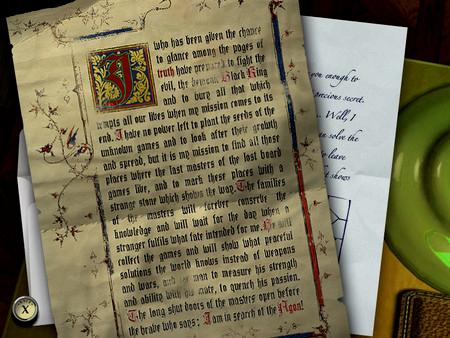 I who has been given the chance
to glance among the pages of
truth have prepared to fight the
evil, the demonic Black King
and to bury all that which
tempts all our lives when my mission comes to its
end. I have no power left to plant the seeds of the
unknown games and to look after their growth
and spread, but it is my mission to find all those
places where the last masters of the lost board
games live, and to mark these places with a
strange stone which shows the way. The families
of the masters will forever conserve the
knowledge and will wait for the day when a
stranger fulfils what fate intended for me. He will
collect the games and will show what peaceful
solutions the world knows instead of weapons
and wars, and let man to measure his strength
and ability with his mate, to quench his passion.
The long shut doors of the masters open before
the brave who says: I am in search of the Agon!
you enough to
precious secret.
... Well, I
can solve the
to leave
shows
X